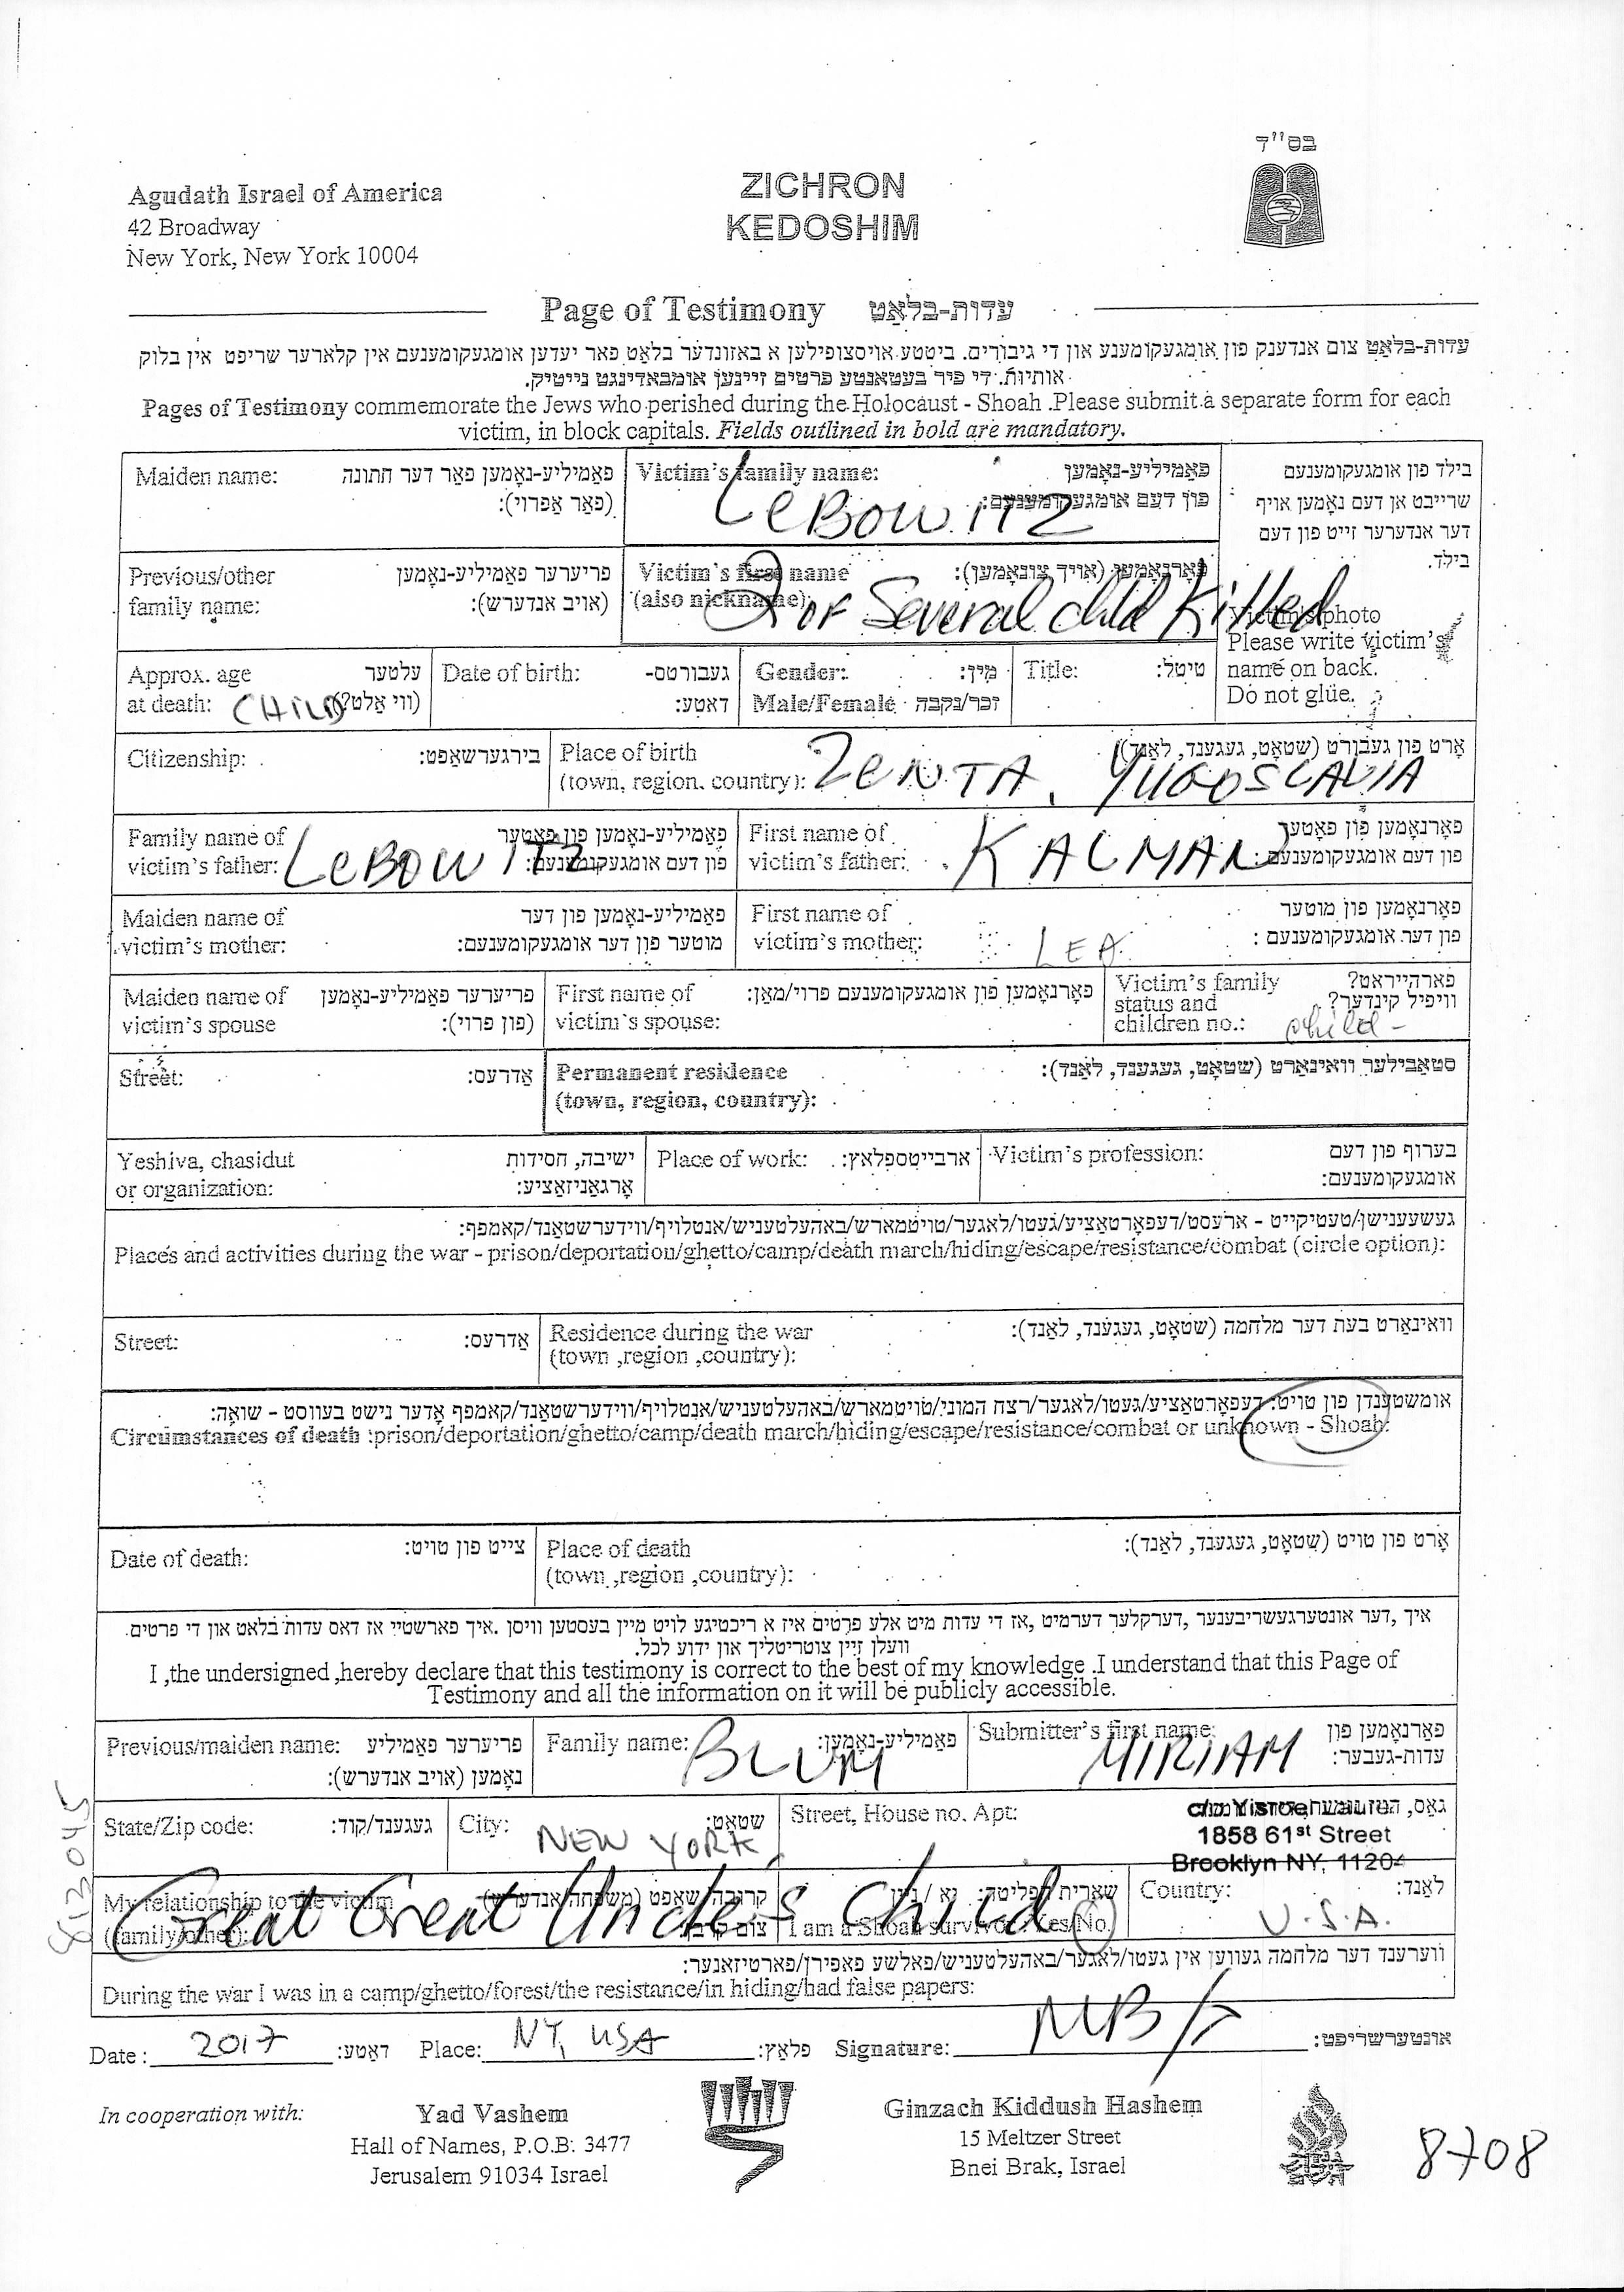 בס"ד
Agudath Israel of America
42 Broadway
New York, New York 10004
ZICHRON
KEDOSHIM
Page of Testimony עדות-בלאָט
עדות-בלאָט צום אנדענק פון אומגעקומענע און די גיבורים. ביטטע אויסצופילען א באזונדער בלאט פאר יעדען אומגעקומענעם אין קלארער שריפט אין בלוק
אותיות. די פיר בעטאנטע פרטים זיינען אומבאדינגט נייטיק.
Pages of Testimony commemorate the Jews who perished during the Holocaust - Shoah .Please submit a separate form for each
victim, in block capitals. Fields outlined in bold are mandatory.
Maiden name: פאַמיליע-נאָמען פאַר דער חתונה
(פאַר אַפרוי):
Victim's family name: פאַמיליע-נאָמען
פון דעם אומגעקומענעם:
LEBOWITZ
בילד פון אומגעקומענעם
שרייבט אן דעם נאָמען אויף
דער אנדערער זייט פון דעם
בילד.
Victim's photo
Please write victim's
name on back.
Do not glue.
Previous/other פריערער פאַמיליע-נאָמען
family name: (אויב אנדערש):
Victim's first name פאָרנאָמען (אויך צונאָמען):
(also nickname)
2 OF Several child Killed
Approx. age עלטער
at death: CHILD (ווי אַלט?)
Date of birth: געבורטס-
דאַטע:
Gender: מין:
Male/Female זכר/נקבה
Title: טיטל:
Citizenship: בירגערשאַפט:
Place of birth אָרט פון געבורט (שטאָט, געגענד, לאַנד)
(town, region, country): ZENTA, YUGOSLAVIA
Family name of פאַמיליע-נאָמען פון פאָטער
victim's father: LEBOWITZ פון דעם אומגעקומענעם:
First name of פאָרנאָמען פון פאָטער
victim's father: KALMAN פון דעם אומגעקומענעם:
Maiden name of פאַמיליע-נאָמען פון דער
victim's mother: מוטער פון דער אומגעקומענעם:
First name of פאָרנאָמען פון מוטער
victim's mother: LEA פון דער אומגעקומענעם :
Maiden name of פריערער פאַמיליע-נאָמען
victim's spouse (פון פרוי):
First name of פאָרנאָמען פון אומגעקומענעם פרוי/מאַן:
victim's spouse:
Victim's family פארהייראט?
status and וויפיל קינדער?
children no.: child -
Street: אַדרעס:
Permanent residence סטאַבילער וואוינאָרט (שטאָט, געגענד, לאַנד):
(town, region, country):
Yeshiva, chasidut ישיבה, חסידות
or organization: אָרגאַניזאַציע:
Place of work: ארבייטספלאץ:
Victim's profession: בערוף פון דעם
אומגעקומענעם:
געשעענישן/טעטיקייט - ארעסט/דעפּאָרטאַציע/געטו/לאגער/טויטמארש/באהעלטעניש/אנטלויף/ווידערשטאנד/קאמפף:
Places and activities during the war - prison/deportation/ghetto/camp/death march/hiding/escape/resistance/combat (circle option):
Street: אַדרעס:
Residence during the war וואוינאָרט בעת דער מלחמה (שטאָט, געגענד, לאַנד):
(town ,region ,country):
אומשטענדן פון טויט: דעפּאָרטאַציע/געטו/לאגער/רצח המוני/טויטמארש/באהעלטעניש/אנטלויף/ווידערשטאנד/קאמפף אָדער נישט בעוואוסט - שואה:
Circumstances of death :prison/deportation/ghetto/camp/death march/hiding/escape/resistance/combat or unknown - Shoah:
Date of death: צייט פון טויט:
Place of death אָרט פון טויט (שטאָט, געגענד, לאַנד):
(town ,region ,country):
איך ,דער אונטערגעשריבענער ,דערקלער דערמיט ,אז די עדות מיט אלע פרטים איז א ריכטיגע לויט מיין בעסטען וויסן .איך פארשטיי אז דאס עדות בלאט און די פרטים
וועלן זיין צוטריטליך און ידוע לכל.
I ,the undersigned ,hereby declare that this testimony is correct to the best of my knowledge .I understand that this Page of
Testimony and all the information on it will be publicly accessible.
Previous/maiden name: פריערער פאַמיליע
נאָמען (אויב אנדערש):
Family name: BLUM פאַמיליע-נאָמען:
Submitter's first name: פאָרנאָמען פון
MIRIAM עדות-געבער:
State/Zip code: געגענד/קוד:
City: שטאָט:
NEW YORK
Street, House no. Apt:
1858 61st Street
Brooklyn NY, 11204
My relationship to the victim
(family/other):
Great Great Uncle's Child
שארית הפליטה: יא / ניין
I am a Shoah survivor: Yes/No.
Country: לאַנד:
U.S.A.
ווערענד דער מלחמה געווען אין געטו/לאגער/באהעלטעניש/פאלשע פאפירן/פארטיזאנער:
During the war I was in a camp/ghetto/forest/the resistance/in hiding/had false papers:
Date: 2017 דאַטע: Place: NY, USA פלאַץ: Signature: MB אונטערשריפט:
In cooperation with:
Yad Vashem
Hall of Names, P.O.B. 3477
Jerusalem 91034 Israel
Ginzach Kiddush Hashem
15 Meltzer Street
Bnei Brak, Israel
8708